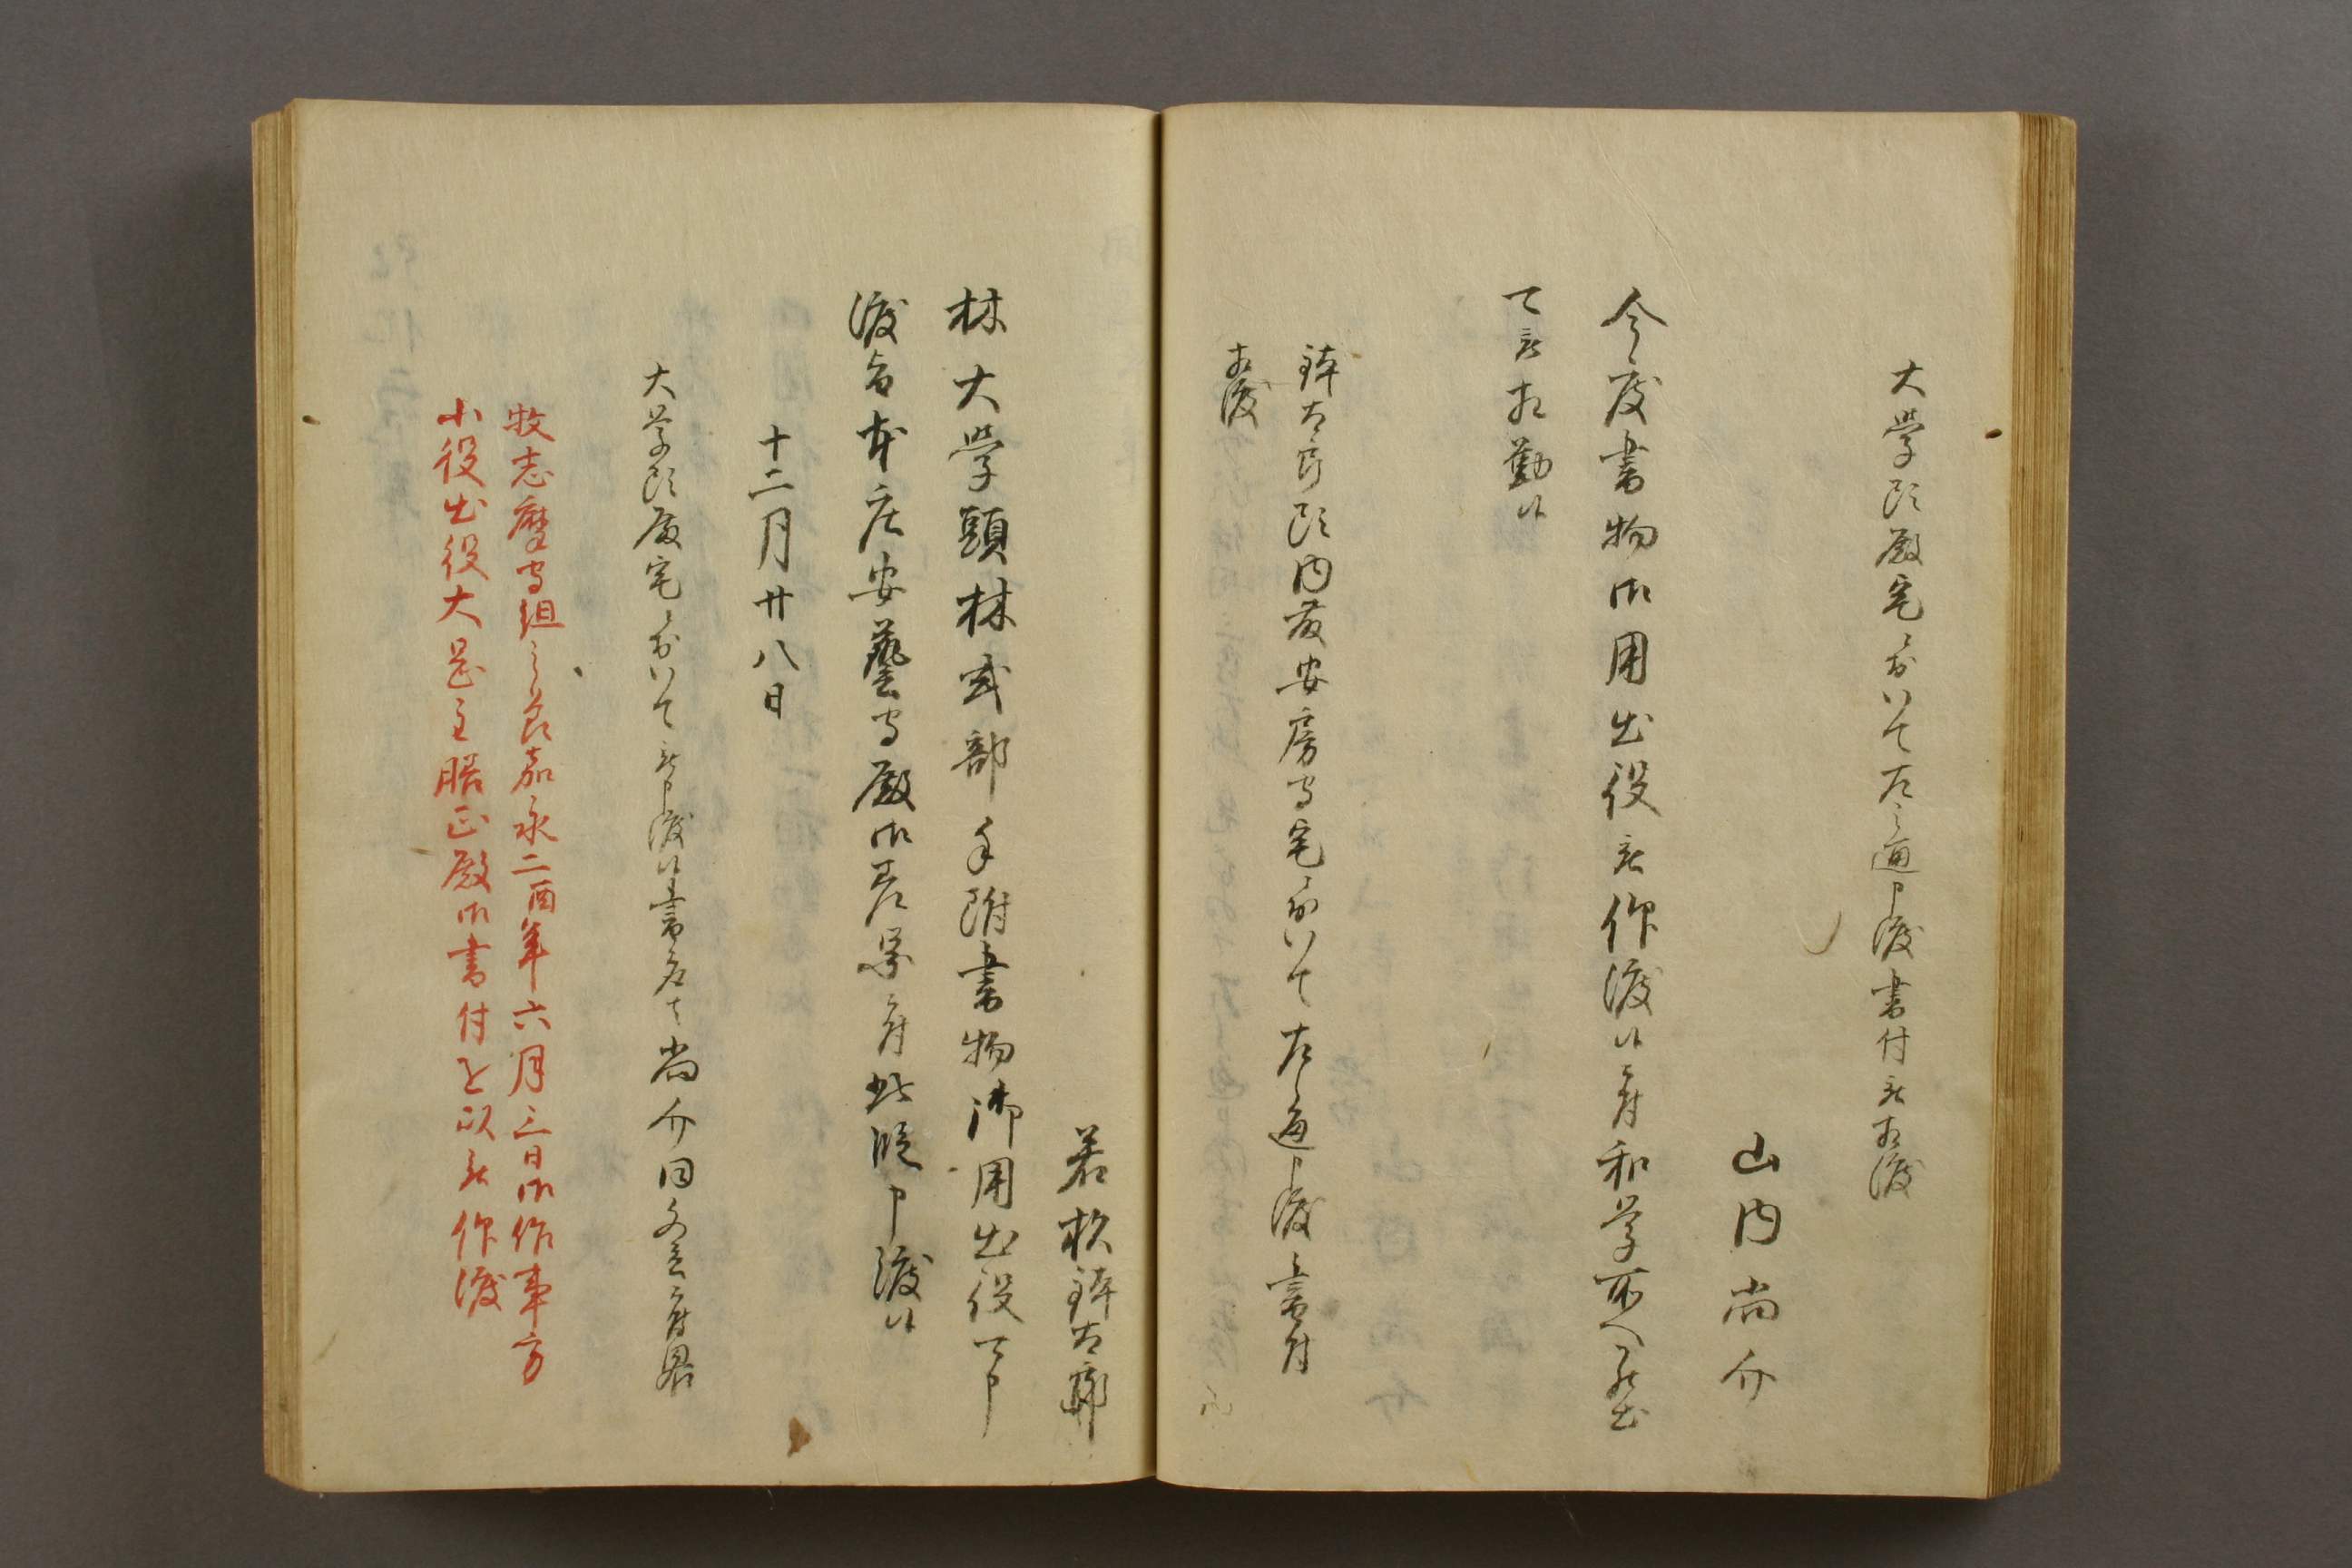 大学頭殿宅ニおいて左之通申渡書付被相渡
山内尚介
今度書物御用出役被仰渡候ニ付和学所へ罷出
可被相勤候
鉢太郎頭内藤安房守宅ニおいて左之通申渡書付
相渡
若林鉢太郎
林大学頭林式部手附書物御用出役可申
渡旨本庄安藝守殿御差図ニ付此段申渡候
十二月廿八日
大学頭殿宅ニおいて被申渡候書面者尚介同文言ニ付略
牧志摩守組之節嘉永二酉年六月三日御作事方
小役出役大岡主膳正殿御書付を以被仰渡